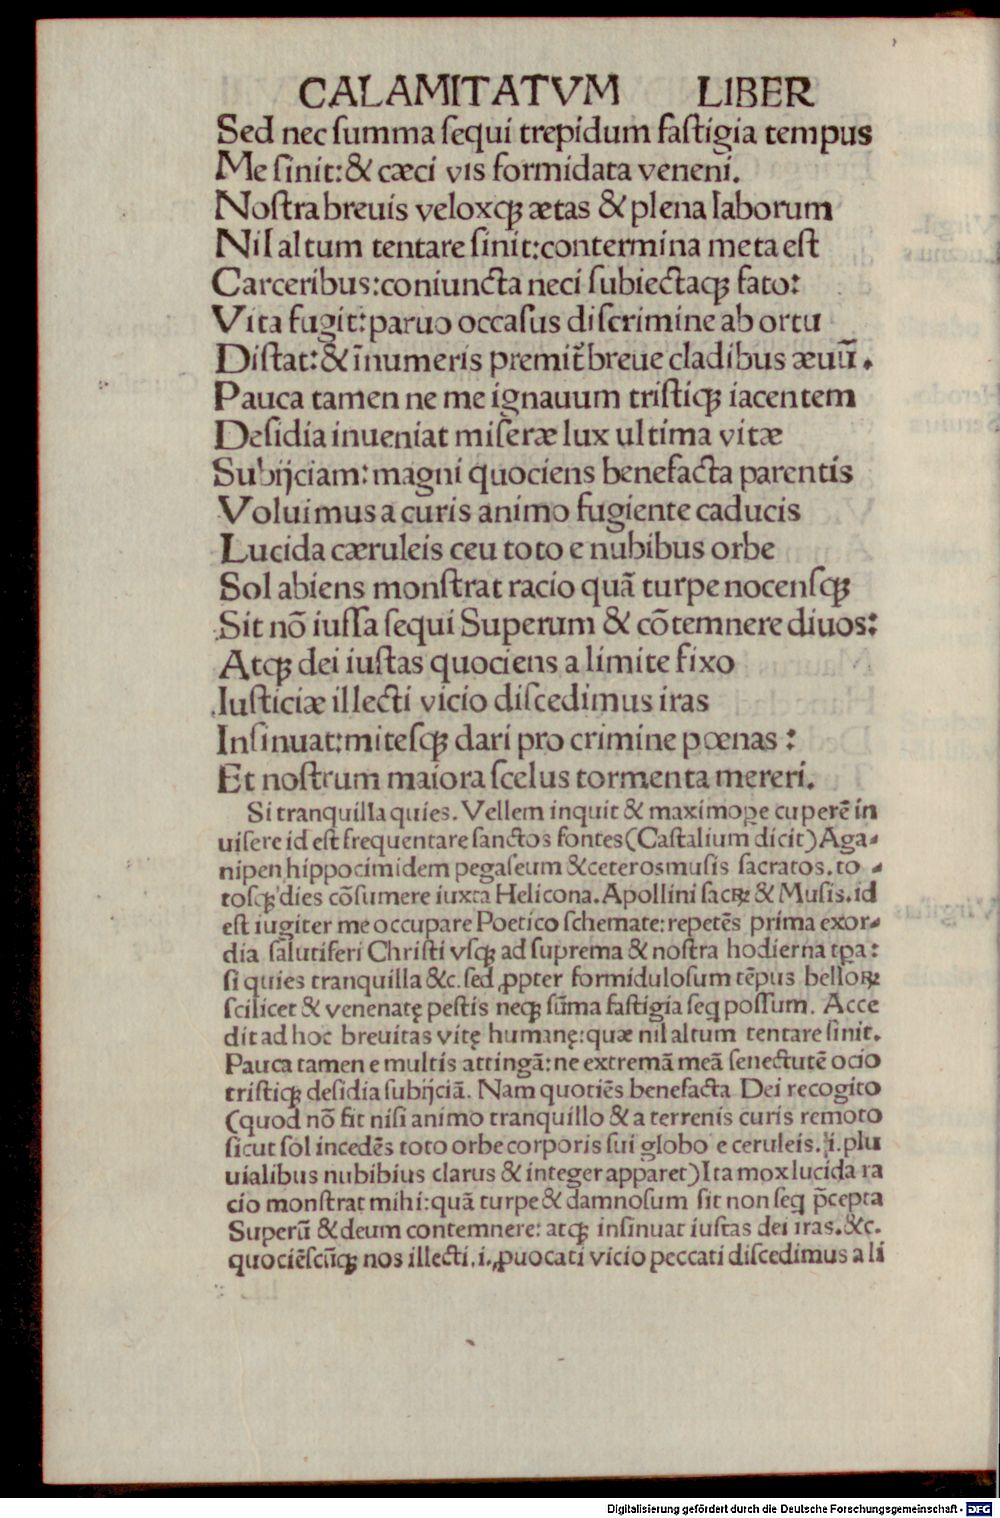 CALAMITATVM LIBER
Sed nec ſumma ſequi trepidum faſtigia tempus
Me ſinit:& cæci vis formidata veneni.
Noſtra breuis veloxqꝫ ætas & plena laborum
Nil altum tentare ſinit:contermina meta eſt
Carceribus:coniuncta neci ſubiectaqꝫ fato:
Vita fugit:paruo occaſus diſcrimine ab ortu
Diſtat:& īnumeris premit᷑ breue cladibus æuū.
Pauca tamen ne me ignauum triſtiqꝫ iacentem
Deſidia inueniat miſeræ lux ultima vitæ
Subijciam: magni quociens benefacta parentis
Voluimus a curis animo fugiente caducis
Lucida cæruleis ceu toto e nubibus orbe
Sol abiens monſtrat racio quã turpe nocenſqꝫ
Sit nõ iuſſa ſequi Superum & cõtemnere diuos:
Atqꝫ dei iuſtas quociens a limite fixo
Iuſticiæ illecti vicio diſcedimus iras
Inſinuat:miteſqꝫ dari pro crimine pœnas :
Et noſtrum maiora ſcelus tormenta mereri.
Si tranquilla quies. Vellem inquit & maximoꝑe cuperē in
uiſere id eſt frequentare ſanctos fontes(Caſtalium dicit)Aga-
nipen hippocimidem pegaſeum &ceteros muſis ſacratos. to -
toſqꝫ dies cõſumere iuxta Helicona. Apollini ſacꝝ & Muſis. id
eſt iugiter me occupare Poetico ſchemate: repetēs prima exor-
dia ſalutiferi Chriſti vſqꝫ ad ſuprema & noſtra hodierna tꝑa:
ſi quies tranquilla &c. ſed ꝓpter formiduloſum tēpus belloꝝ
ſcilicet & venenatę peſtis neqꝫ ſūma faſtigia ſeq̨ poſſum. Acce
dit ad hoc breuitas vitę humanę:quæ nil altum tentare ſinit.
Pauca tamen e multis attingã: ne extremã meã ſenectutē ocio
triſtiqꝫ deſidia ſubijciã. Nam quotiēs benefacta Dei recogito
(quod nõ fit niſi animo tranquillo & a terrenis curis remoto
ſicut ſol incedēs toto orbe corporis ſui globo e ceruleis. i. plu
uialibus nubibius clarus & integer apparet)Ita mox lucida ra
cio monſtrat mihi:quã turpe & damnoſum ſit non ſeq̨ p̄cepta
Superū & deum contemnere: atqꝫ inſinuat iuſtas dei iras. &c.
quociēſcūqꝫ nos illecti. i. ꝓuocati vicio peccati diſcedimus a li
Digitalisierung gefördert durch die Deutsche Forschungsgemeinschaft - DFG